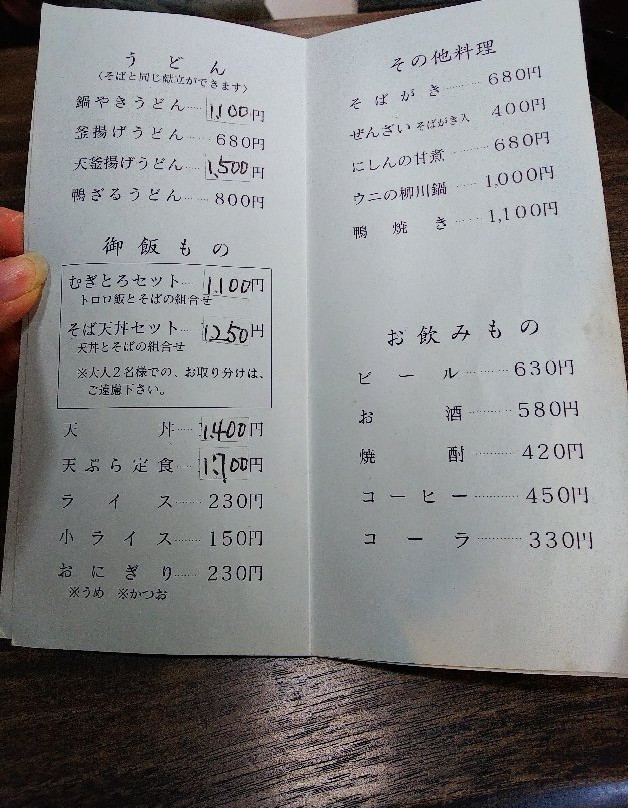 うどん
〈そばと同じ献立ができます〉
鍋やきうどん……1,100円
釜揚げうどん……680円
天釜揚げうどん……1,500円
鴨ざるうどん……800円
御飯もの
むぎとろセット……1,100円
トロロ飯とそばの組合せ
そば天丼セット……1,250円
天丼とそばの組合せ
※大人2名様での、お取り分けは、
ご遠慮下さい。
天丼……1,400円
天ぷら定食……1,700円
ライス……230円
小ライス……150円
おにぎり……230円
※うめ ※かつお
その他料理
そばがき……680円
ぜんざい そばがき入 400円
にしんの甘煮……680円
ウニの柳川鍋……1,000円
鴨焼き……1,100円
お飲みもの
ビール……630円
お酒……580円
焼酎……420円
コーヒー……450円
コーラ……330円